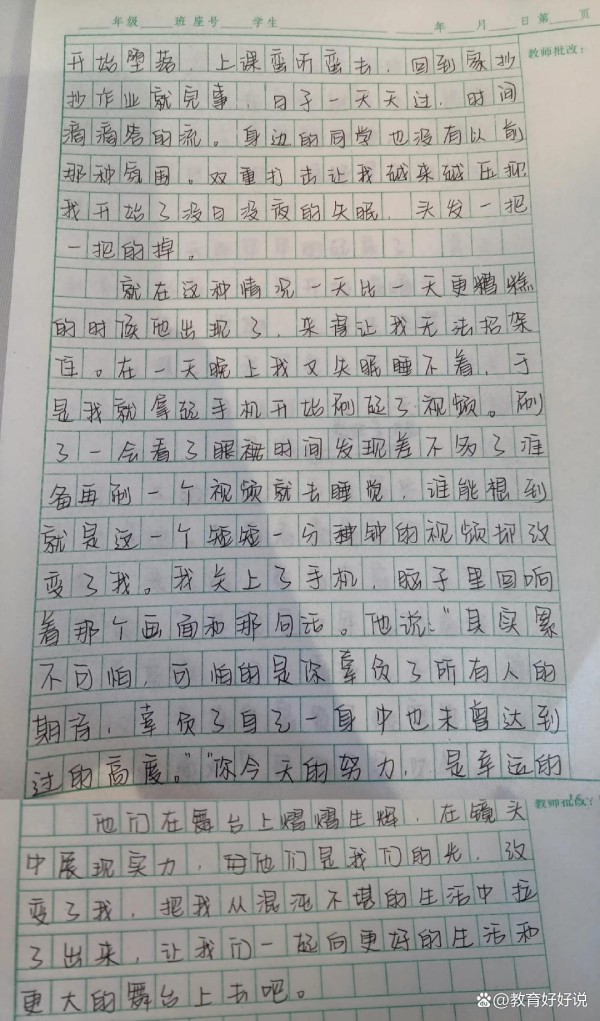 年级 班 座号 学生 年 月 日 第 页
教师批改：
开始堕落，上课蛮听蛮去，回到家抄
抄作业就完事，日子一天天过，时间
滴滴答的流。身边的同学也没有以前
那种氛围。双重打击让我越来越压抑
我开始了没日没夜的失眠，头发一把
一把的掉。
就在这种情况一天比一天更糟糕
的时候他出现了，来得让我无法招架
住。在一天晚上我又失眠睡不着，于
是我就拿起手机开始刷起了视频。刷
了一会看了眼时间发现差不多了准
备再刷一个视频就去睡觉，谁能想到
就是这一个短短一分钟的视频却改
变了我。我关上了手机，脑子里回响
着那个画面和那句话。他说：“其实累
不可怕，可怕的是你辜负了所有人的
期音，辜负了自己一身中也未曾达到
过的高度。”“你今天的努力，是幸运的
教师批改：
他们在舞台上熠熠生辉，在镜头
中展现实力，他们是我们的光，改
变了我，把我从混沌不堪的生活中拉
了出来，让我们一起向更好的生活和
更大的舞台上去吧。
@教育好好说